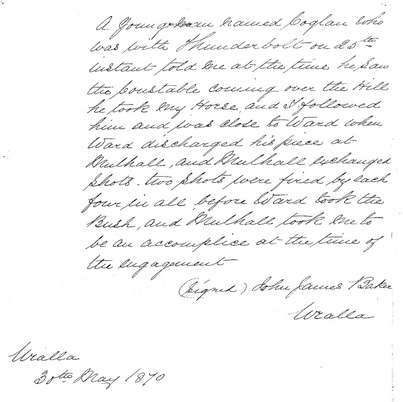 A Young man named Coglan who
was with Thunderbolt on 25th
instant told me at the time he saw
the Constable coming over the Hill
he took my Horse and I followed
him and was close to Ward when
Ward discharged his piece at
Mulhall, and Mulhall exchanged
shots. two shots were fired by each
four in all before Ward took the
Bush, and Mulhall took me to
be an accomplice at the time of
the engagement
(signed) John James Baker
Uralla
Uralla
30th May 1870